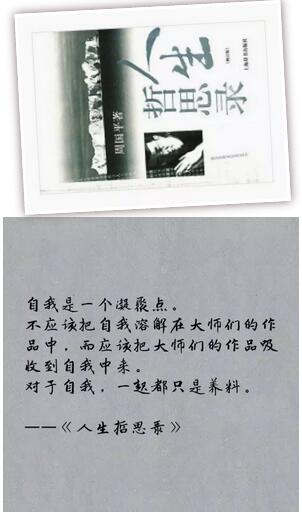 人生
哲思录
周国平 著
上海辞书出版社
自我是一个凝聚点。
不应该把自我溶解在大师们的作
品中，而应该把大师们的作品吸
收到自我中来。
对于自我，一起都只是养料。
——《人生哲思录》